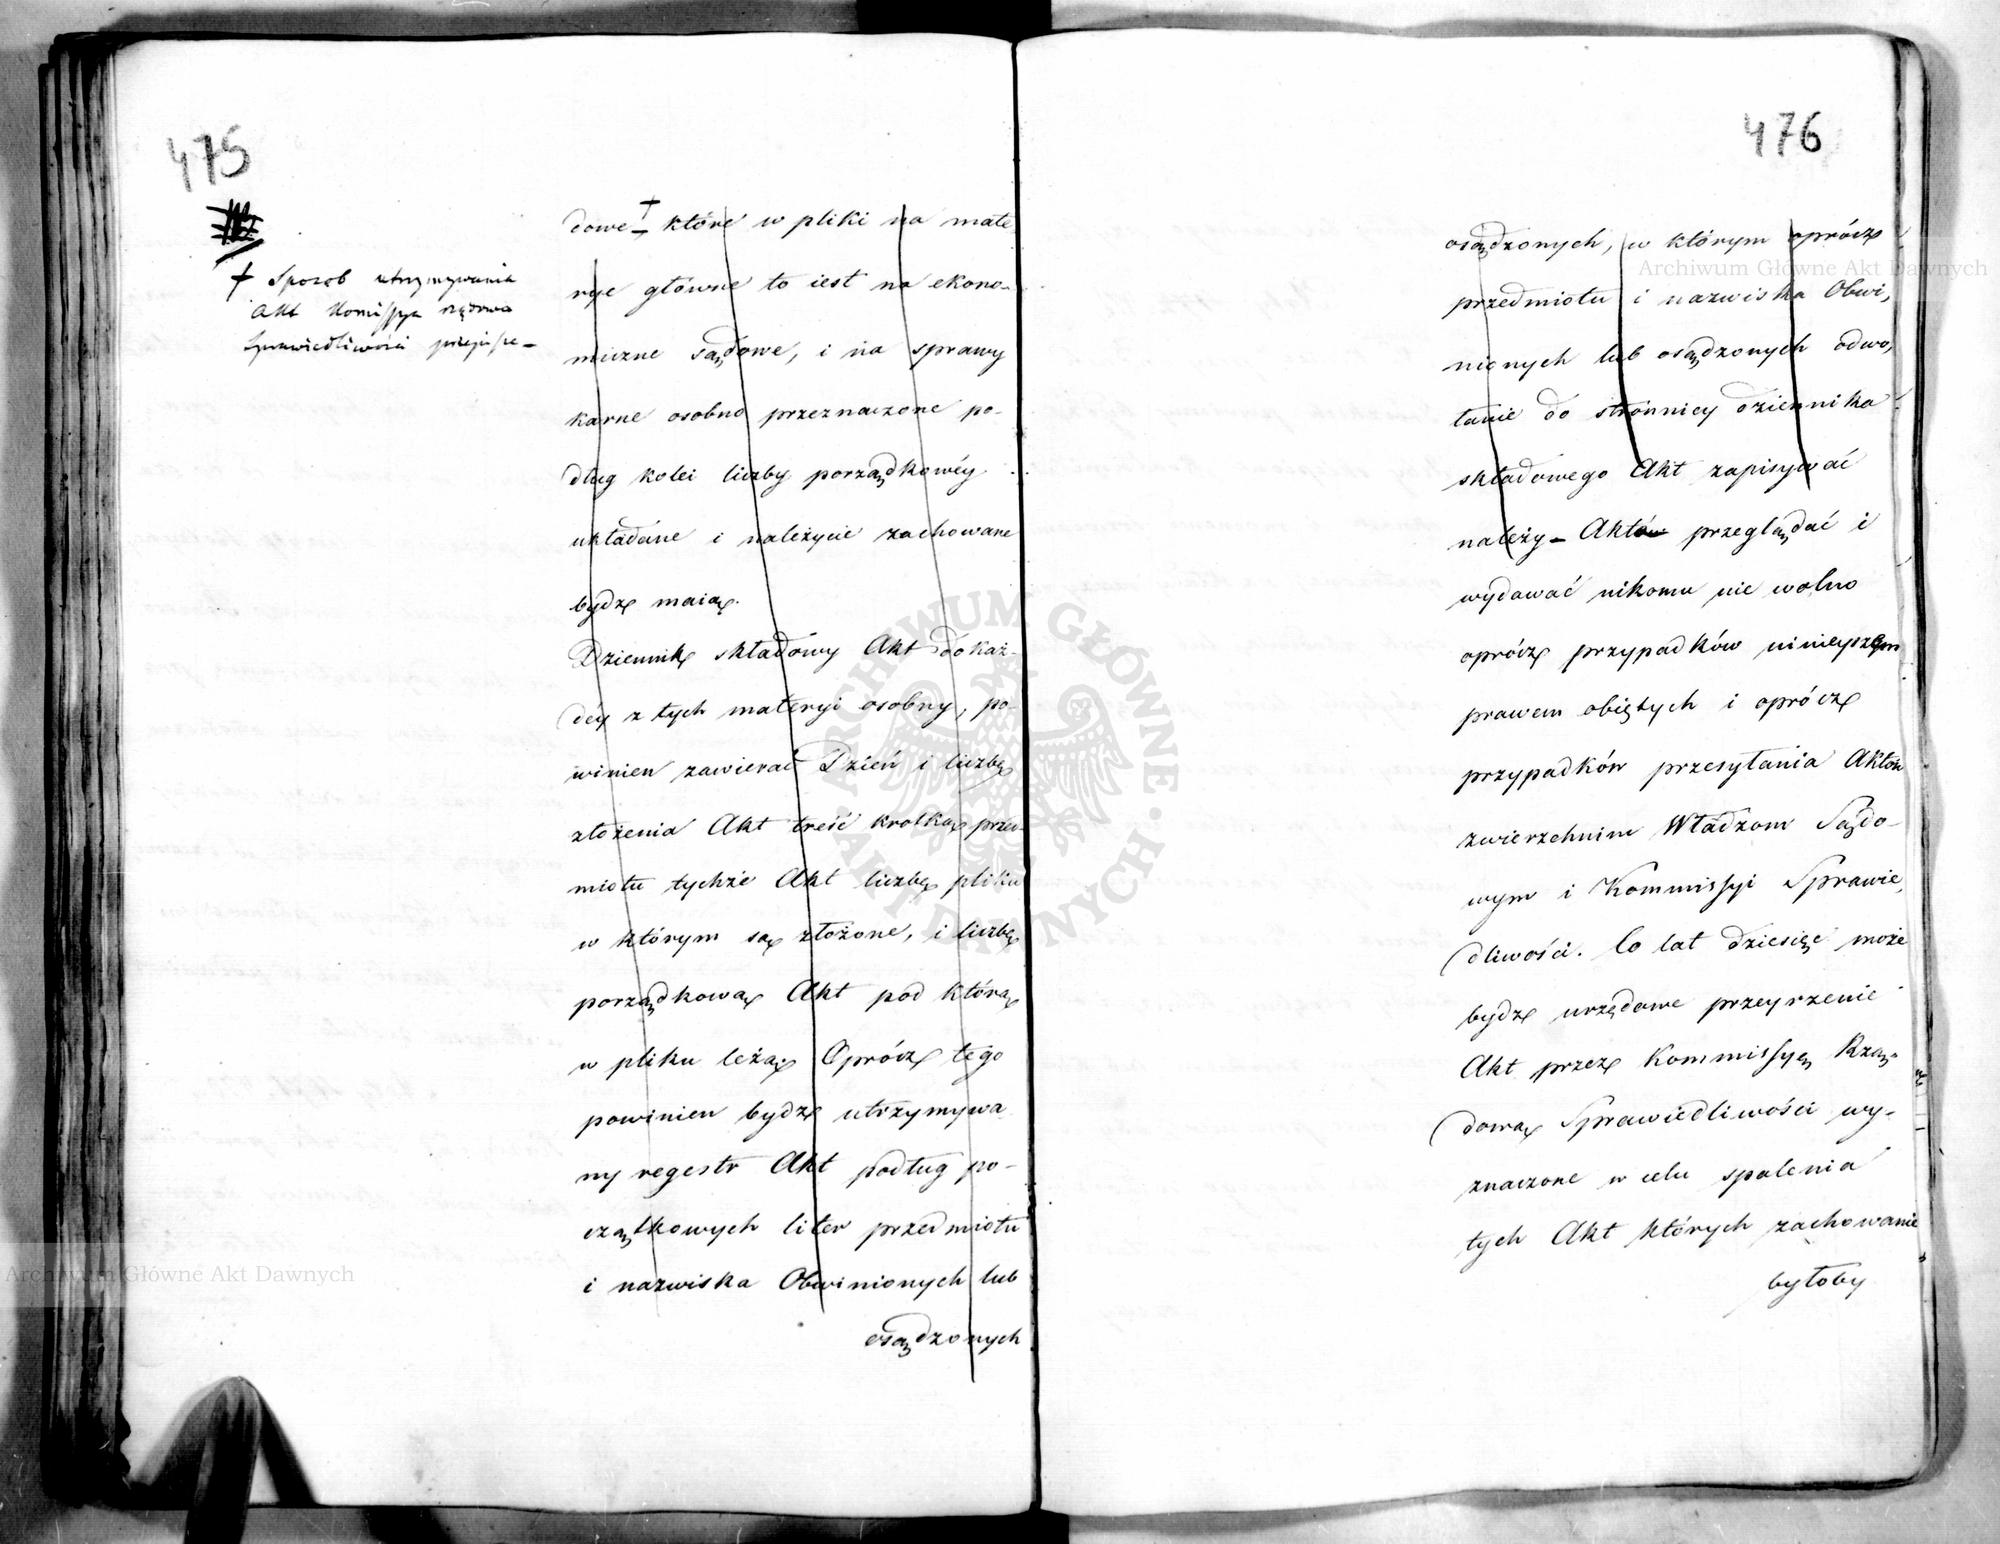 475
+ Sposób utrzymywania
Akt Kommissya rządowa
Sprawiedliwości przepisze –
dowe + które w pliki na mate
rye główne to iest na ekono-
miczne sądowe, i na sprawy
karne osobno przeznaczone po-
dług kolei liczby porządkowéy
układane i należycie zachowane
bydź maią.
Dziennik składowy Akt do każ-
déy z tych materyi osobny, po-
winien zawierać Dzień i liczbę
złożenia Akt treść krotką przed-
miotu tychże Akt liczbę pliku
w którym są złożone, i liczbę
porządkową Akt pod którą
w pliku leżą. Oprócz tego
powinien bydź utrzymywa
ny regestr Akt podług po-
czątkowych liter przedmiotu
i nazwiska Obwinionych lub
osądzonych
476
osądzonych, w którym oprócz
przedmiotu i nazwiska Obwi,
nionych lub osądzonych odwo,
łanie do strónnicy dziennika
składowego Akt zapisywać
należy – Aktów przeglądać i
wydawać nikomu nie wolno
oprócz przypadków ninieyszem
prawem obiętych i oprócz
przypadków przesyłania Aktów
zwierzchnim Władzom Sądo-
wym i Kommissyi Sprawie,
dliwości. Co lat dziesięć może
bydź urzędowe przeyrzenie
Akt przez Kommissyą Rzą-
dową Sprawiedliwości wy-
znaczone w celu spalenia
tych Akt których zachowanie
byłoby
Archiwum Główne Akt Dawnych
Archiwum Główne Akt Dawnych
ARCHIWUM GŁÓWNE · AKT DAWNYCH ·